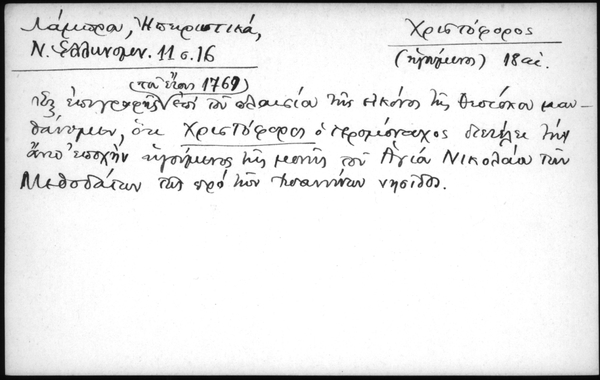 Λάμπρου, Ἠπειρωτικά,
Ν. Ἑλληνομν. 11 σ. 16
Χριστόφορος
(ἡγούμενος) 18 αἰ.
(τοῦ ἔτους 1769)
Ἐξ ἐπιγραφῆς ἐπὶ τοῦ πλαισίου τῆς εἰκόνος τῆς Θεοτόκου μαν-
θάνομεν, ὅτι Χριστόφορος ὁ ἱερομόναχος διετέλει τὴν
ἄνω ἐποχὴν ἡγούμενος τῆς μονῆς τοῦ Ἁγίου Νικολάου τῶν
Μεθοδάτων τῆς πρὸ τῶν Ἰωαννίνων νησίδος.